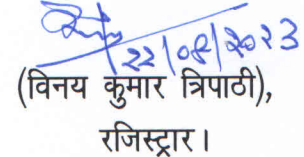 22/08/2023
(विनय कुमार त्रिपाठी),
रजिस्ट्रार।